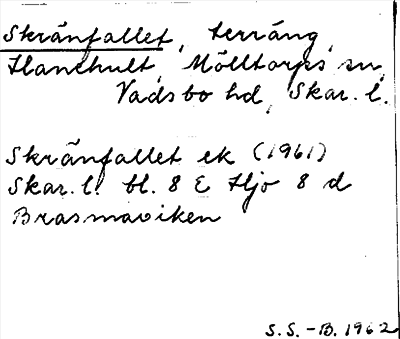 Skränfallet, terräng,
Hanehult, Mölltorps sn,
Vadsbo hd, Skar. l.
Skränfallet ek (1961)
Skar. l. bl. 8 E Hjo 8 d
Brasmaviken
S.S. - B. 1962